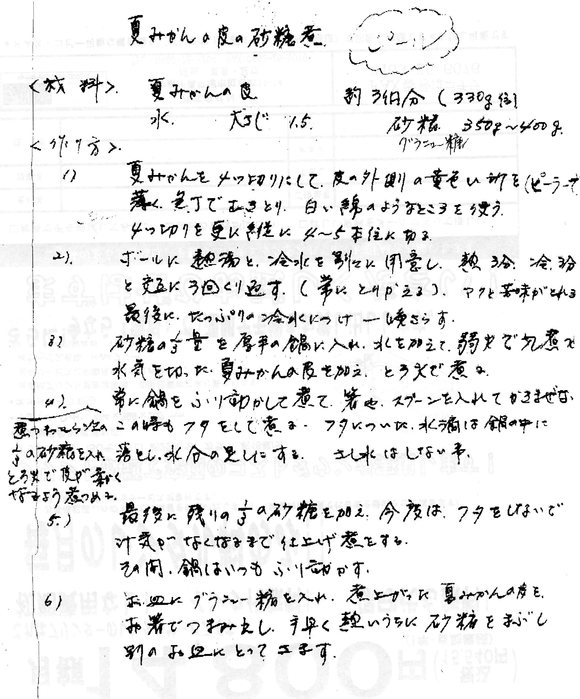 夏みかんの皮の砂糖煮
ピール
<材料>. 夏みかんの皮 約3個分(330g位)
水. 大さじ 1.5. 砂糖 350g~400g.
グラニュー糖
<作り方>.
1) 夏みかんを4つ切りにして、皮の外側の黄色い所を(ピーラーで
薄く、包丁でむきとり、白い綿のようなところを使う.
4つ切りを更に縦に4~5本位に切る.
2). ボールに熱湯と、冷水を別々に用意し、熱3分、冷3分
と交互に3回くり返す.(常にとりかえる). アクと苦味がとれる
最後に、たっぷりの冷水につけ一晩さらす.
3) 砂糖の1/3量を厚手の鍋に入れ、水を加えて、弱火で少し煮て
水気を切った夏みかんの皮を加え、とろ火で煮る.
4). 常に鍋をふり動かして煮て、箸や、スプーンを入れてかきまぜない
この時もフタをして煮る. フタについた、水滴は鍋の中に
落とし、水分の足しにする. さし水はしない事.
煮つまったら次の
1/3の砂糖を入れ
とろ火で皮が軟く
なるよう煮つめる
5) 最後に残りの1/3の砂糖を加え、今度は、フタをしないで
汁気がなくなるまで仕上げ煮をする.
その間、鍋はいつもふり動かす.
6) お皿にグラニュー糖を入れ、煮上がった夏みかんの皮を、
お箸でつまみ出し、手早く熱いうちに砂糖をまぶし
別のお皿にとってさます.